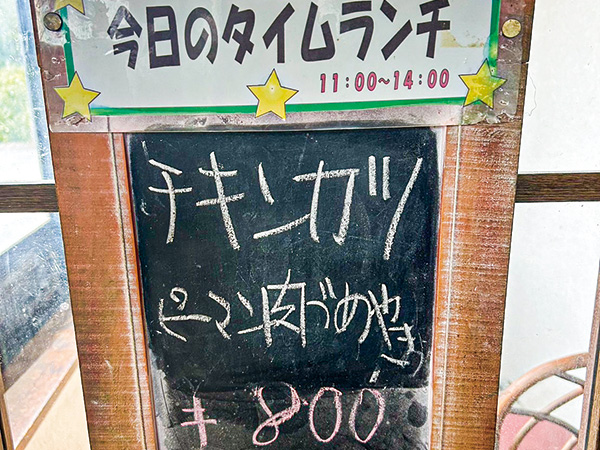 今日のタイムランチ
11:00~14:00
チキンカツ
ピーマン肉づめやき
¥800